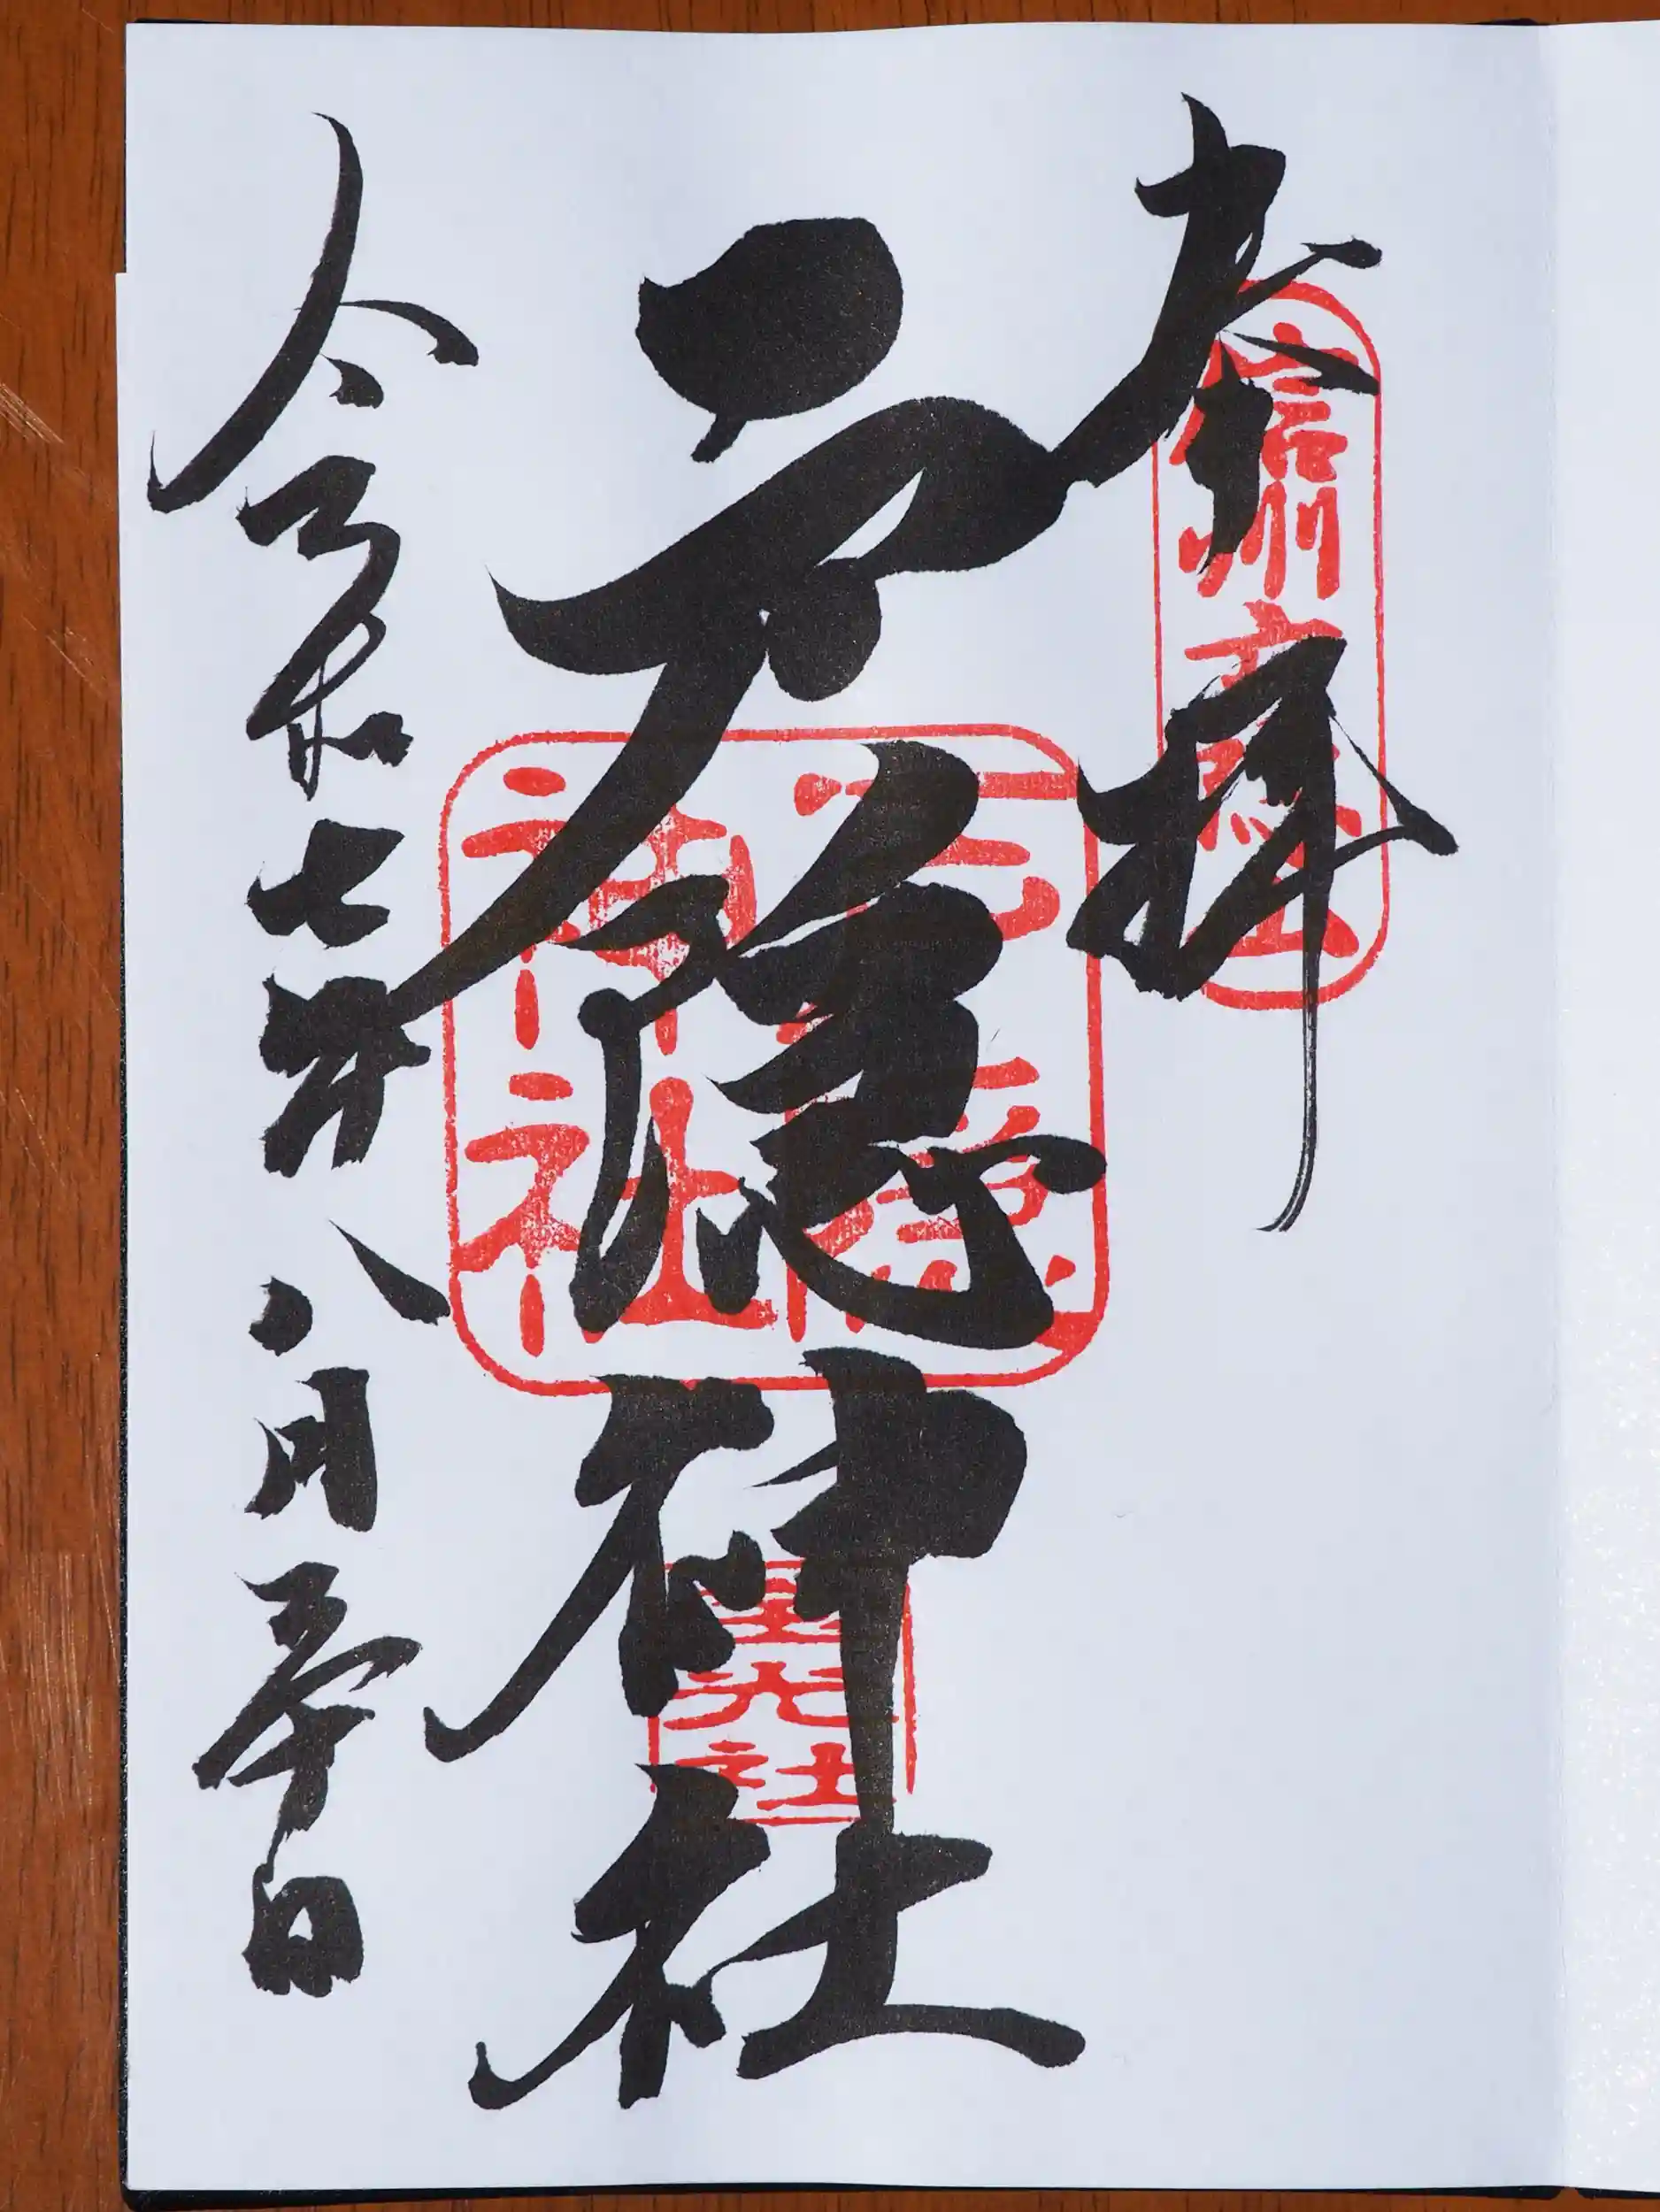 奉拝
信州戸隠山
戸隠神社
戸隠
神社
宝光社
令和七年八月
日